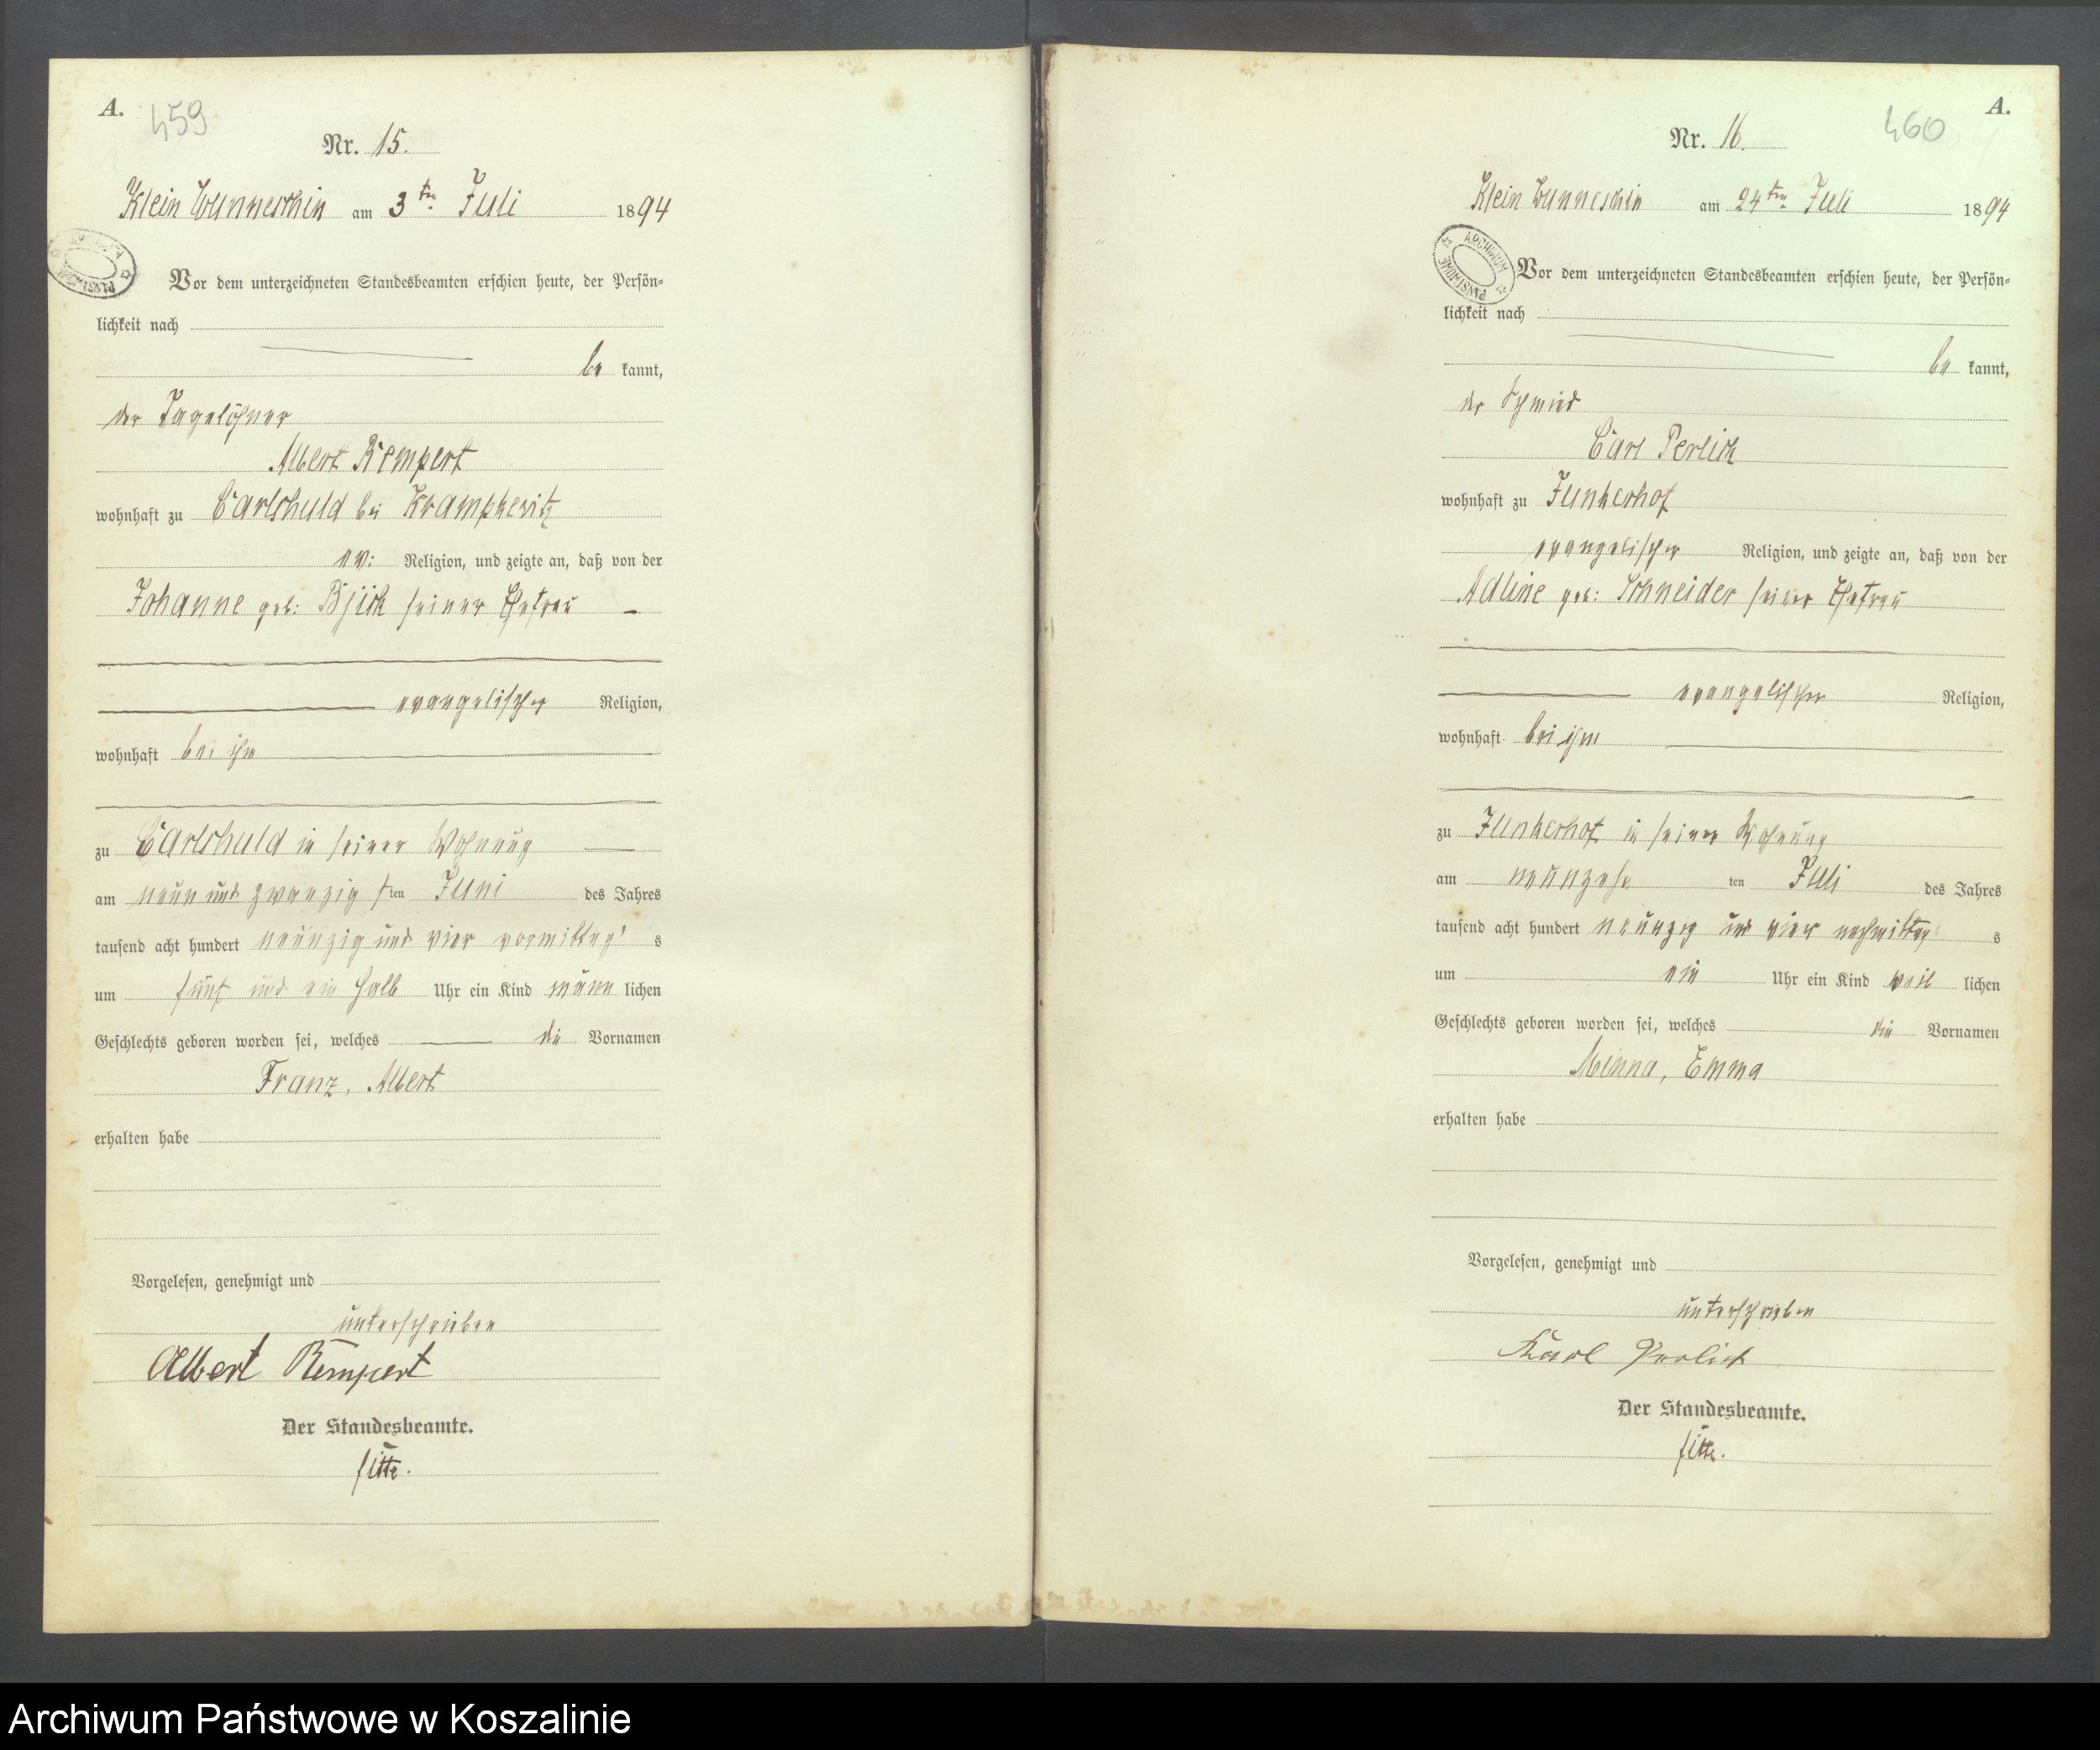 A.
459
Nr. 15.
Klein Wunneschin am 3ten Juli 1894
Vor dem unterzeichneten Standesbeamten erschien heute, der Persön-
lichkeit nach
be kannt,
der Tagelöhner
Albert Rempert
wohnhaft zu Carlshuld bei Krampkewitz
ev: Religion, und zeigte an, daß von der
Johanne geb: seiner Ehefrau
evangelischer Religion,
wohnhaft bei ihm
zu Carlshuld in seiner Wohnung
am neun und zwanzigsten Juni des Jahres
tausend acht hundert neunzig und vier vormittags
um fünf und ein halb Uhr ein Kind männlichen
Geschlechts geboren worden sei, welches die Vornamen
Franz, Albert
erhalten habe
Vorgelesen, genehmigt und
unterschrieben
Albert Rempert
Der Standesbeamte.
A.
460
Nr. 16.
Klein Wunneschin am 24ten Juli 1894
ARCHIWUM PAŃSTWOWE
Vor dem unterzeichneten Standesbeamten erschien heute, der Persön-
lichkeit nach
be kannt,
der Schmied
Carl Perlick
wohnhaft zu Junkerhof
evangelischer Religion, und zeigte an, daß von der
Adline geb: Schneider seiner Ehefrau
evangelischer Religion,
wohnhaft bei ihm
zu Junkerhof in seiner Wohnung
am neunzehnten Juli des Jahres
tausend acht hundert neunzig und vier nachmittags
um ein Uhr ein Kind weiblichen
Geschlechts geboren worden sei, welches die Vornamen
Minna, Emma
erhalten habe
Vorgelesen, genehmigt und
unterschrieben
Karl Perlick
Der Standesbeamte.
Archiwum Państwowe w Koszalinie